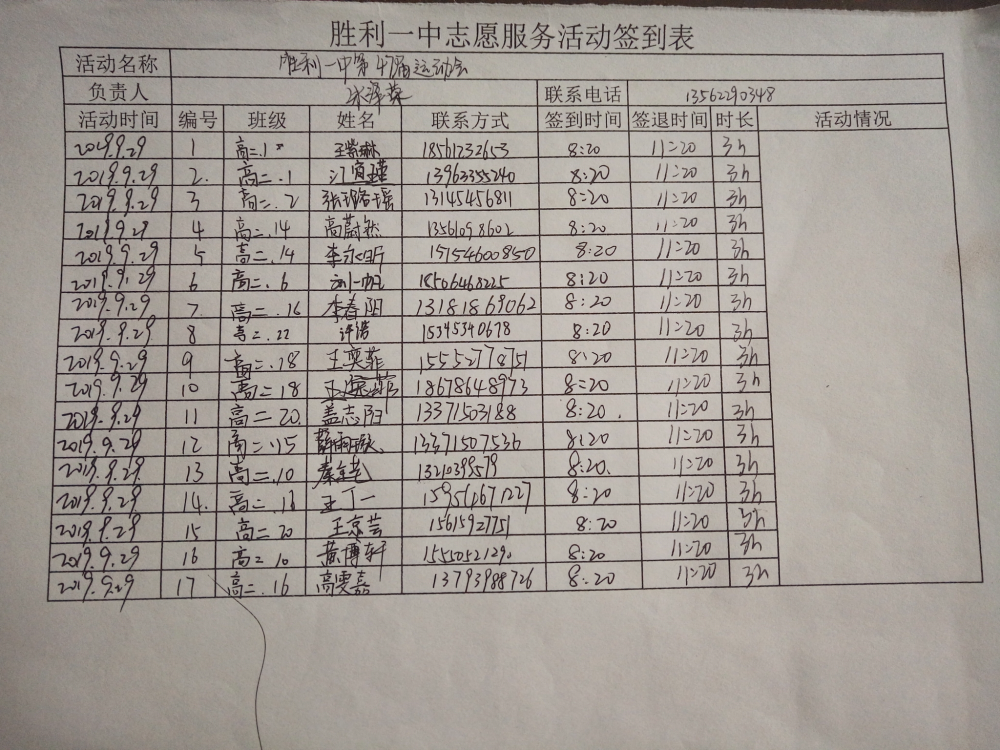 胜利一中志愿服务活动签到表
活动名称 胜利一中第47届运动会
负责人 联系电话 13562290348
活动时间 编号 班级 姓名 联系方式 签到时间 签退时间 时长 活动情况
2019.9.29 1 高二.1 王紫琳 18561232653 8:20 11:20 3h
2019.9.29 2. 高二.1 13963355240 8:20 11:20 3h
2019.9.29 3 高二.2 张璐瑶 13145456811 8:20 11:20 3h
2019.9.29 4 高二.14 高蔚然 13561098602 8:20 11:20 3h
2019.9.29 5 高二.14 李永昕 15154600850 8:20 11:20 3h
2019.9.29 6 高二.6 刘一帆 18506468225 8:20 11:20 3h
2019.9.29 7. 高二.16 李春阳 13181869062 8:20 11:20 3h
2019.9.29 8 高二.22 许浩 15345340678 8:20 11:20 3h
2019.9.29 9 高二.18 王奕菲 15552778751 8:20 11:20 3h
2019.9.29 10 高二18 18678648973 8:20 11:20 3h
2019.9.29 11 高二20. 盖志阳 13371503188 8:20. 11:20 3h
2019.9.29 12 高二.15 13371507536 8:20 11:20 3h
2019.9.29 13 高二.10 13210399579 8:20. 11:20 3h
2019.9.29 14. 高二.16 王丁一 8:20 11:20 3h
2019.9.29 15 高二20 王京芸 15615927751 8:20 11:20 3h
2019.9.29 16 高二10 黄博轩 15550521290 8:20 11:20 3h
2019.9.29 17 高二.16 高雯嘉 13793988726 8:20 11:20 3h